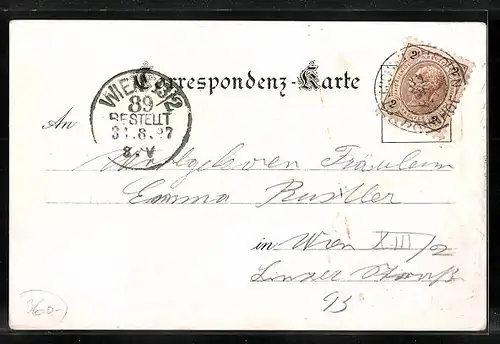 Correspondenz-Karte
WIEN 13/2
89
BESTELLT
31.8.97
8.V
An Wohlgeboren Fräulein
Emma
in Wien XIII/2
Linzer Straße
93
360-